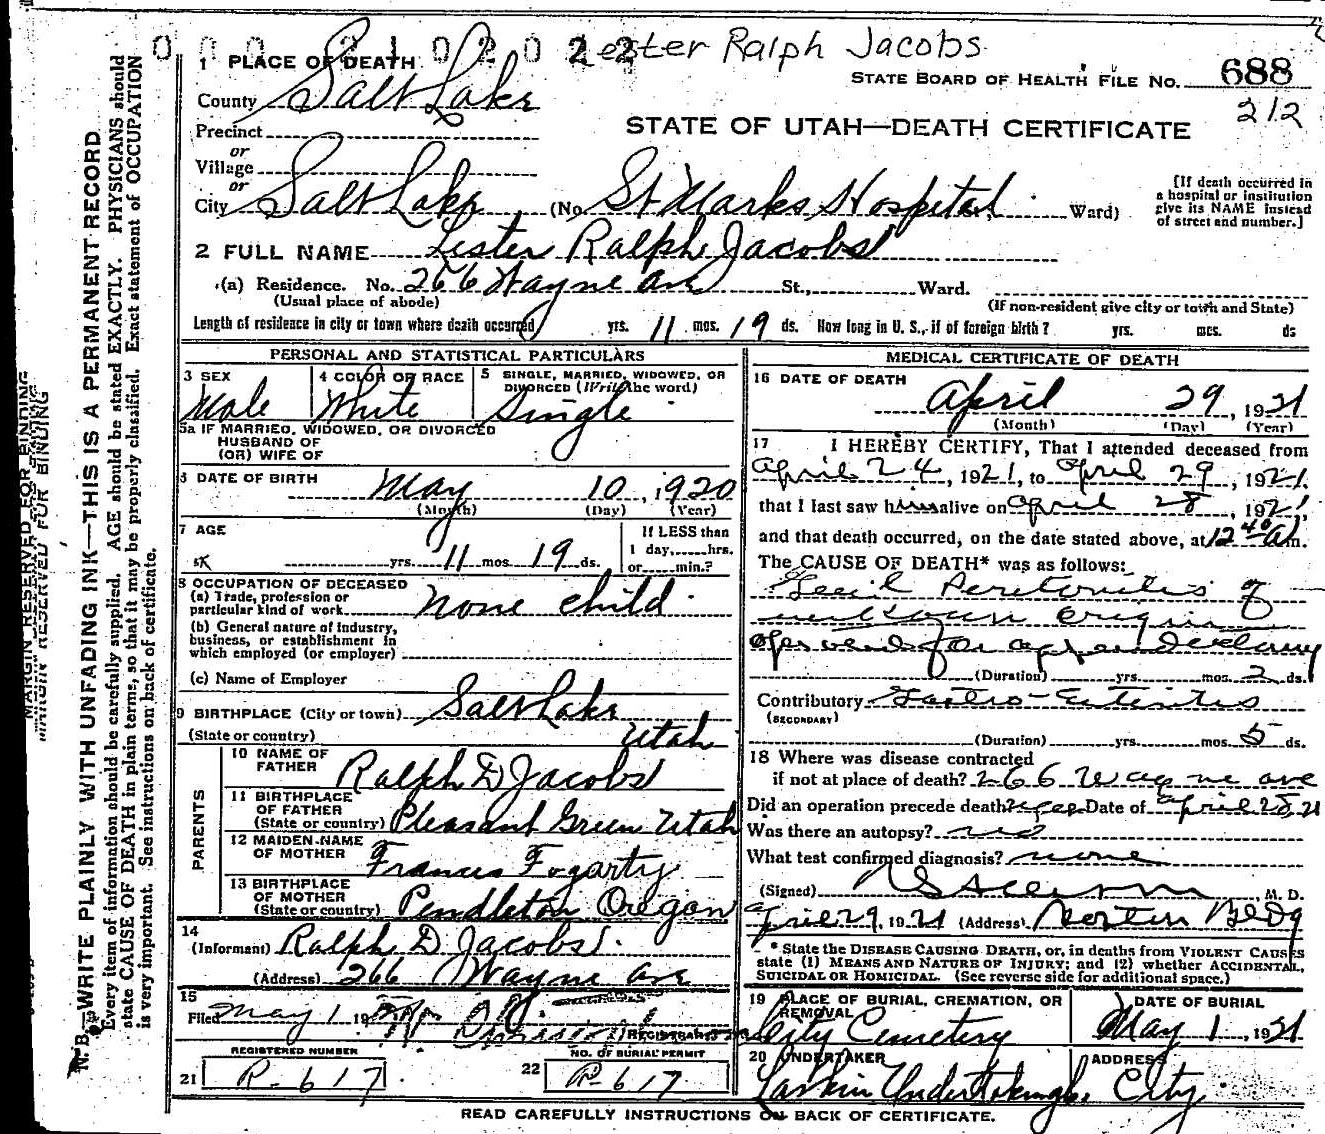 0 0 0 2 1 0 2 0 2 2 Lester Ralph Jacobs
1 PLACE OF DEATH
STATE BOARD OF HEALTH FILE NO. 688
County Salt Lake
212
STATE OF UTAH—DEATH CERTIFICATE
Precinct
or
Village
or
City Salt Lake (No. St Marks Hospital Ward)
[If death occurred in
a hospital or institution
give its NAME instead
of street and number.]
2 FULL NAME Lester Ralph Jacobs
(a) Residence. No. 266 Wayne Ave St., Ward.
(Usual place of abode)
(If non-resident give city or town and State)
Length of residence in city or town where death occurred yrs. 11 mos. 19 ds. How long in U. S., if of foreign birth? yrs. mos. ds
PERSONAL AND STATISTICAL PARTICULARS
3 SEX
Male
4 COLOR OR RACE
White
5 SINGLE, MARRIED, WIDOWED, OR
DIVORCED (Write the word)
Single
5a IF MARRIED, WIDOWED, OR DIVORCED
HUSBAND OF
(OR) WIFE OF
6 DATE OF BIRTH May 10, 1920
(Month) (Day) (Year)
7 AGE
yrs. 11 mos. 19 ds.
If LESS than
1 day,......hrs.
or......min.?
8 OCCUPATION OF DECEASED
(a) Trade, profession or
particular kind of work None child
(b) General nature of Industry,
business, or establishment in
which employed (or employer)
(c) Name of Employer
9 BIRTHPLACE (City or town) Salt Lake
(State or country) Utah
PARENTS
10 NAME OF
FATHER Ralph D Jacobs
11 BIRTHPLACE
OF FATHER
(State or country) Pleasant Green Utah
12 MAIDEN-NAME
OF MOTHER Frances Fogarty
13 BIRTHPLACE
OF MOTHER
(State or country) Pendleton Oregon
14
(Informant) Ralph D Jacobs
(Address) 266 Wayne Ave
15
Filed May 1 19
REGISTRAR
REGISTERED NUMBER
21 R-617
NO. OF BURIAL PERMIT
22 R-617
MEDICAL CERTIFICATE OF DEATH
16 DATE OF DEATH
April 29, 1921
(Month) (Day) (Year)
17 I HEREBY CERTIFY, That I attended deceased from
April 24, 1921, to April 29, 1921
that I last saw him alive on April 28, 1921
and that death occurred, on the date stated above, at 12 40 a m.
The CAUSE OF DEATH* was as follows:
Peritonitis of
unknown origin
operated for appendectomy
(Duration) yrs. mos. 2 ds.
Contributory Gastro-Enteritis
(SECONDARY)
(Duration) yrs. mos. 5 ds.
18 Where was disease contracted
if not at place of death? 266 Wayne ave
Did an operation precede death? yes Date of April 28, 21
Was there an autopsy? no
What test confirmed diagnosis? none
(Signed) M. D.
April 29, 1921 (Address) Bldg
* State the DISEASE CAUSING DEATH, or, in deaths from VIOLENT CAUSES
state (1) MEANS AND NATURE OF INJURY; and (2) whether ACCIDENTAL,
SUICIDAL OR HOMICIDAL. (See reverse side for additional space.)
19 PLACE OF BURIAL, CREMATION, OR
REMOVAL
City Cemetery
DATE OF BURIAL
May 1, 1921
20 UNDERTAKER
Larkin Undertaking Co.
ADDRESS
City
READ CAREFULLY INSTRUCTIONS ON BACK OF CERTIFICATE.
MARGIN RESERVED FOR BINDING
N. B.—WRITE PLAINLY WITH UNFADING INK—THIS IS A PERMANENT RECORD
Every item of information should be carefully supplied. AGE should be stated EXACTLY. PHYSICIANS should
state CAUSE OF DEATH in plain terms, so that it may be properly classified. Exact statement of OCCUPATION
is very important. See instructions on back of certificate.